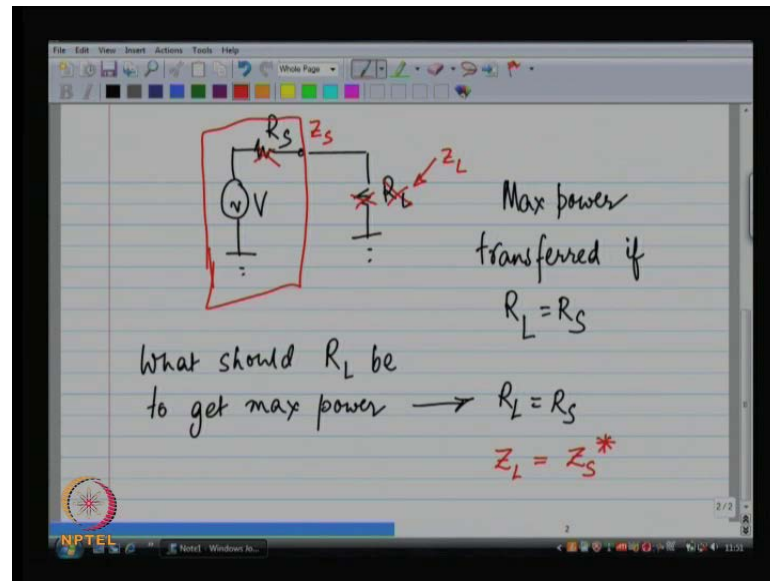 File Edit View Insert Actions Tools Help
Whole Page
B I
R_S Z_S
V
R_L Z_L
Max power
transferred if
R_L = R_S
What should R_L be
to get max power → R_L = R_S
Z_L = Z_S*
2/2
2
NPTEL
Note1 - Windows Jo...
11:51